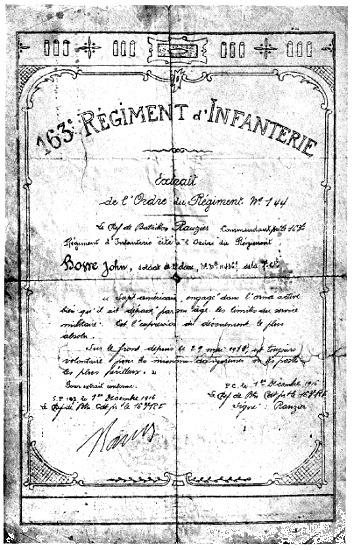 163e RÉGIMENT d'INFANTERIE
Extrait
de l'Ordre du Régiment No 144
Le Chef de Bataillon Rauzier Commandant p.i. le 163e
Régiment d'Infanterie cite à l'Ordre du Régiment
Bowe John, soldat de 2e classe, de la 7e Cie
Sujet américain, engagé dans l'arme active
bien qu'il ait dépassé par son âge les limites du service
militaire. Est l'expression du dévouement le plus
absolu.
Sur le front depuis le 29 mai 1915, est toujours
volontaire pour les missions dangereuses et les postes
les plus périlleux.
Pour extrait conforme.
S.P. le 1er Décembre 1916
Le Chef de Bon Cdt p.i. le 163e R.I.
P.C. le 1er Décembre 1916
Le Chef de Bon Cdt p.i. le 163e R.I.
Signé: Rauzier